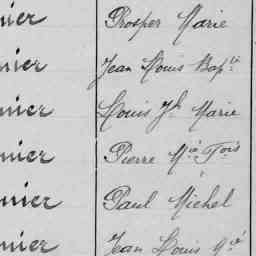 nier Prosper Marie
nier Jean Louis Bap.te
nier Louis Jh Marie
nier Pierre Mie Fois
nier Paul Michel
nier Jean Louis Mie